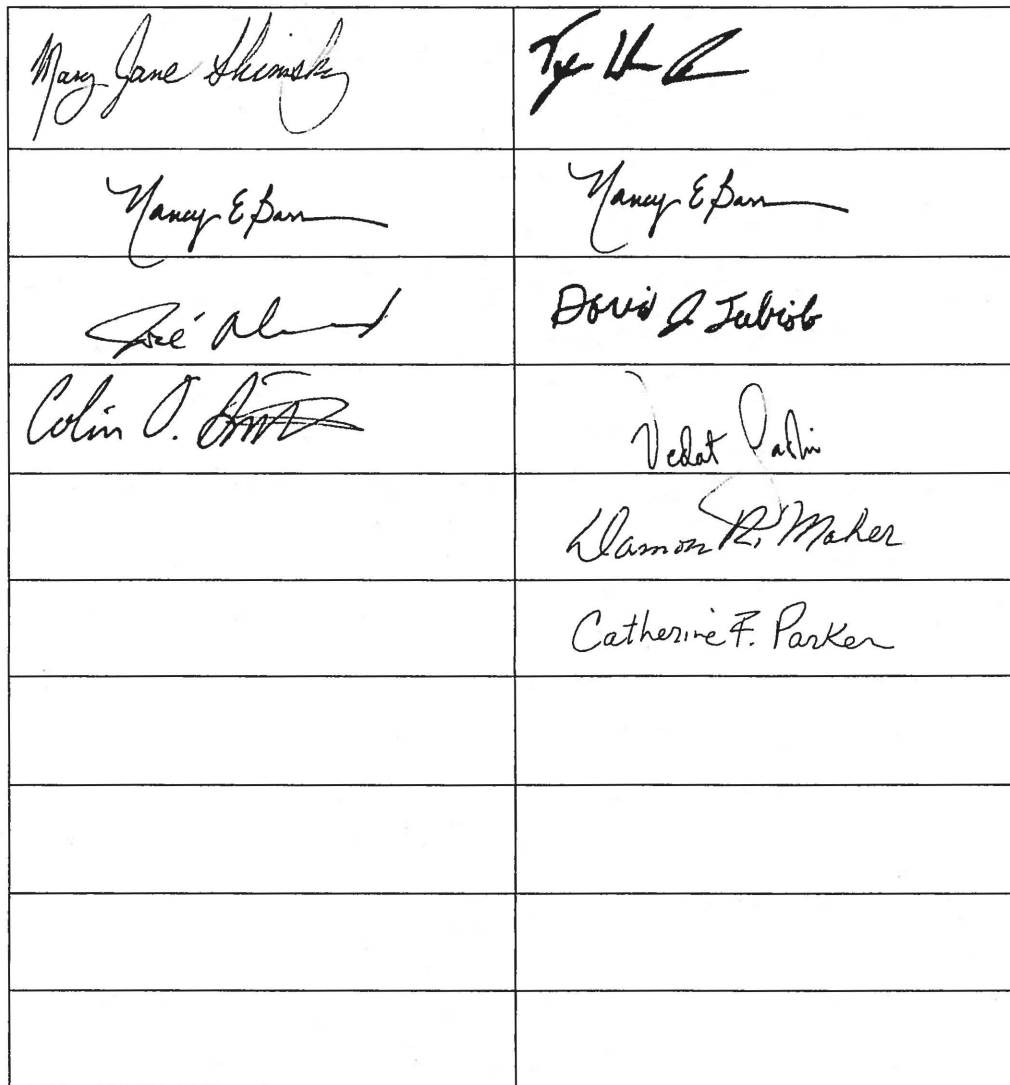 Mary Jane Shimsky
Nancy E Barr
Nancy E Barr
José
David J. Tubiolo
Colin O. Smith
Vedat Gashi
Damon R. Maher
Catherine F. Parker